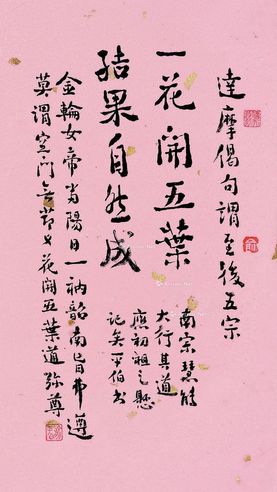 達摩偈句謂至後五宗
一花開五葉
結果自然成
南宗慧能
大行其道
應初祖之懸
記矣 平伯書
金輪女帝當陽日一衲韶南已日弗遵
莫謂空門無節文花開五葉道彌尊